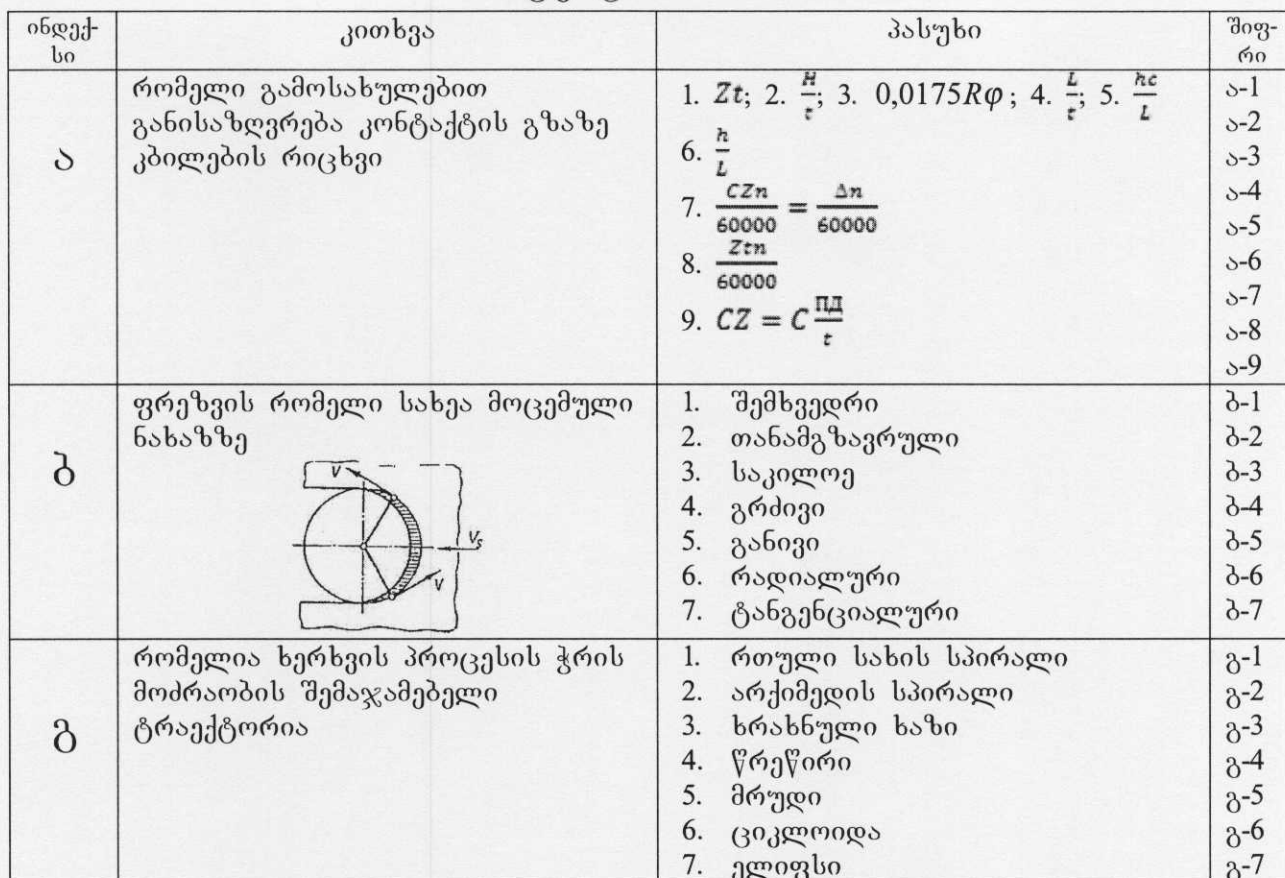 ინდექ-
სი
კითხვა
პასუხი
შიფ-
რი
ა
რომელი გამოსახულებით
განისაზღვრება კონტაქტის გზაზე
კბილების რიცხვი
1. Zt; 2. H/t; 3. 0,0175Rφ; 4. L/t; 5. hc/L
6. h/L
7. CZn/60000 = Δn/60000
8. Ztn/60000
9. CZ = C ПД/t
ა-1
ა-2
ა-3
ა-4
ა-5
ა-6
ა-7
ა-8
ა-9
ბ
ფრეზვის რომელი სახეა მოცემული
ნახაზზე
V
Vs
V
1. შემხვედრი
2. თანამგზავრული
3. საკილოე
4. გრძივი
5. განივი
6. რადიალური
7. ტანგენციალური
ბ-1
ბ-2
ბ-3
ბ-4
ბ-5
ბ-6
ბ-7
გ
რომელია ხერხვის პროცესის ჭრის
მოძრაობის შემაჯამებელი
ტრაექტორია
1. რთული სახის სპირალი
2. არქიმედის სპირალი
3. ხრახნული ხაზი
4. წრეწირი
5. მრუდი
6. ციკლოიდა
7. ელიფსი
გ-1
გ-2
გ-3
გ-4
გ-5
გ-6
გ-7